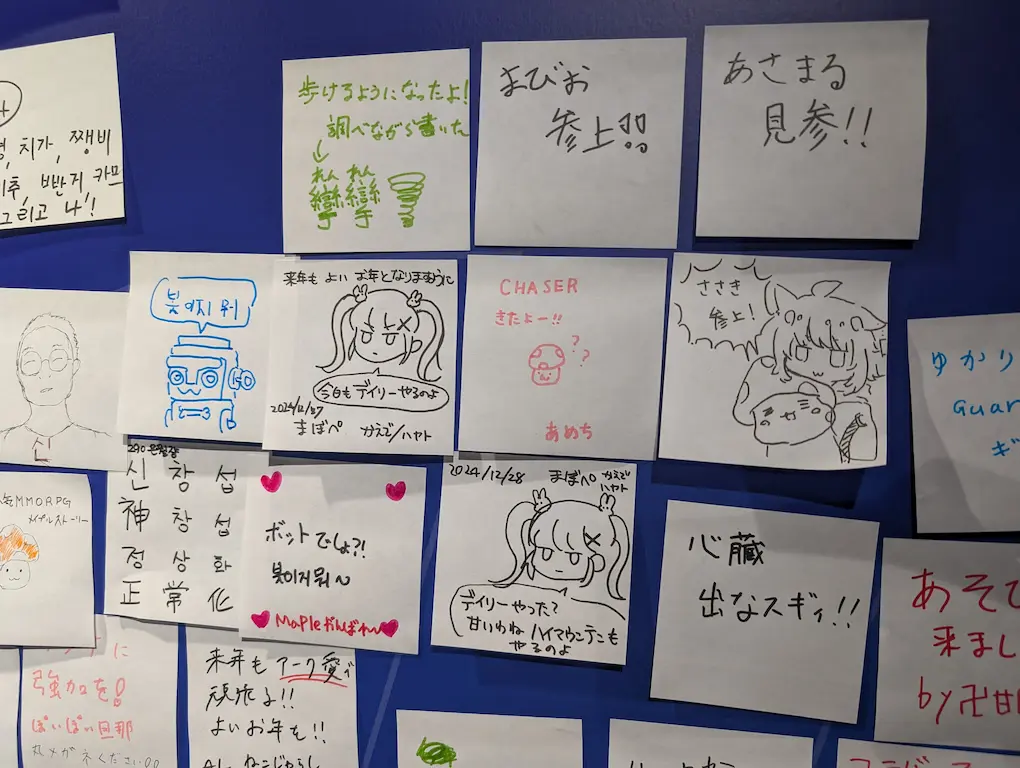 치가, 쨍비
그리고 나!
歩けるようになったよ!
調べながら書いた
まびお
参上!!
あさまる
見参!!
봇이지 뭐
来年もよいお年となりますように
今日もデイリーやるのよ
2024/12/27
まぼぺ かえで/ハヤト
CHASER
きたよー!!
??
あめち
ささき
参上!
ゆかり
Guar
ギ
신
신창섭
神창섭
정상화
正常化
MMORPG
メイプルストーリー
ボットでしょ?!
봇이지뭐~
Mapleがんばれ~
2024/12/28 まぼぺ かえで
ハヤト
デイリーやった?
甘いわね ハイマウンテンも
やるのよ
心臓
出なスギィ!!
あそび
来まし
by卍
に
強力を!
ぽいぽい旦那
丸メガネください!!
来年もアーク愛で
頑張る!!
よいお年も!!
ねこじゃらし